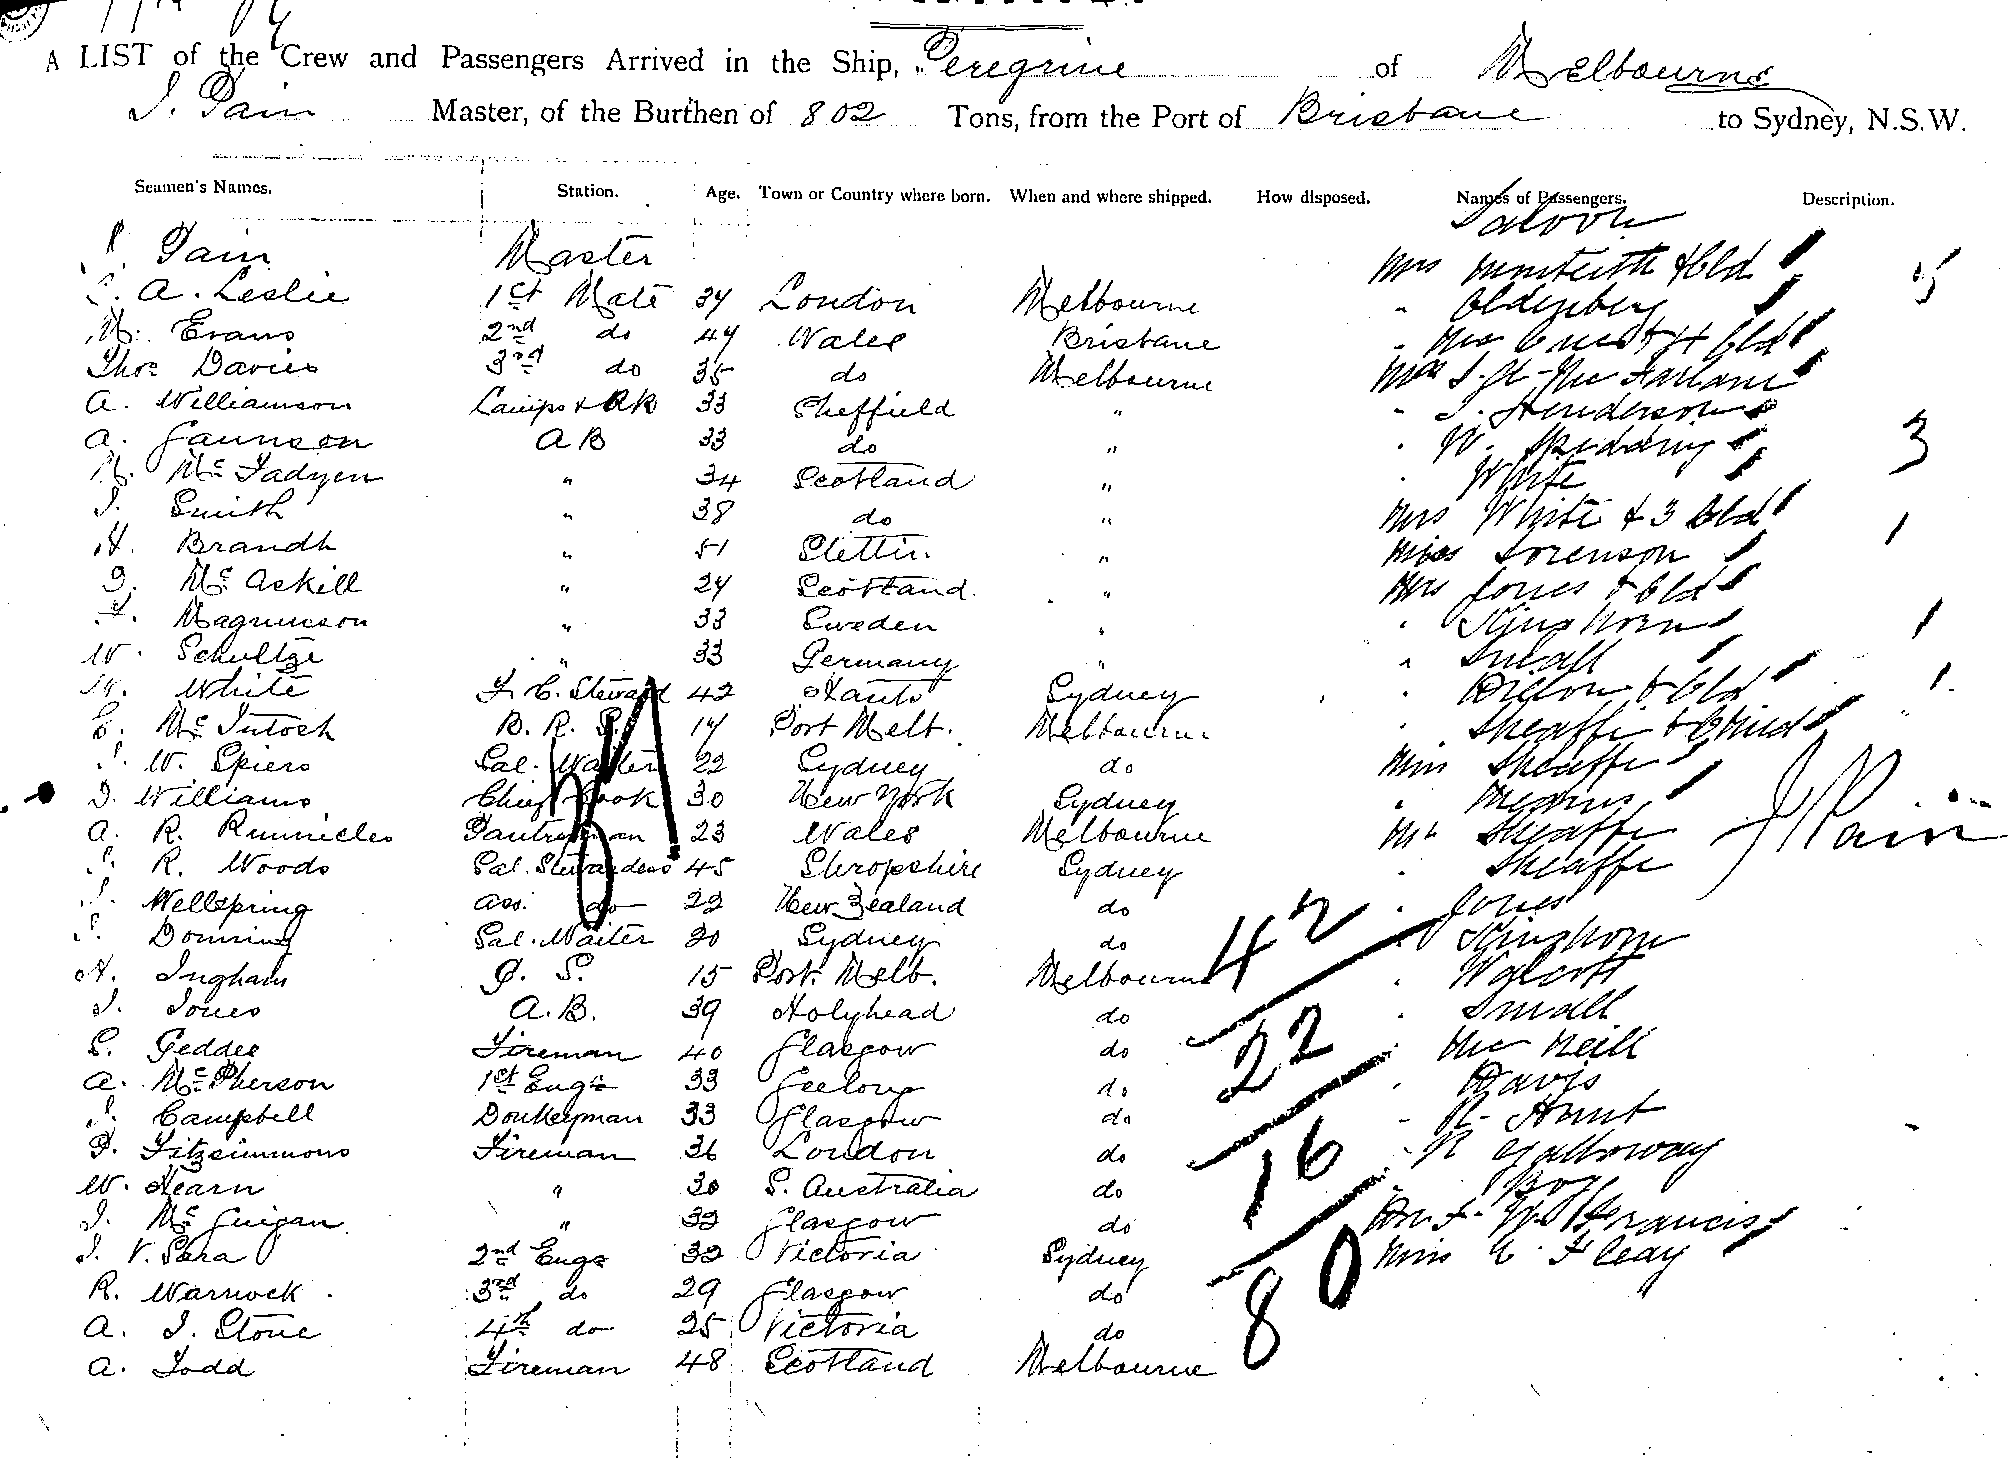 A LIST of the Crew and Passengers Arrived in the Ship, Peregrine of Melbourne
J. Pain Master, of the Burthen of 802 Tons, from the Port of Brisbane to Sydney, N.S.W.
Seamen's Names. Station. Age. Town or Country where born. When and where shipped. How disposed. Names of Passengers. Description.
Saloon
J. Pain Master Mrs Monteith & Cld 5
A. Leslie 1st Mate 34 London Melbourne " Oldenberg
M. Evans 2nd do 44 Wales Brisbane " & 4 Cld
Thos Davies 3rd do 35 do Melbourne J. H. McFarlane
A. Williamson Lamps & AB 33 Sheffield " " J. Henderson
A. Gaunson AB 33 do " " W. Spedding 3
N. McFadyen " 34 Scotland " " White
J. Smith " 38 do " Mrs White & 3 Cld
H. Brandh " 51 Stettin " Miss Sorenson 1
D. McAskill " 24 Scotland " Mrs Jones & Cld
F. Magnusson " 33 Sweden " " Kinghorn 1
W. Schultze " 33 Germany " " Small
W. White F. C. Steward 42 Hants Sydney " Dillon & Cld 1
E. McIntosh B. R. S. 14 Port Melb. Melbourne " Sheaffe & Child
J. W. Spiers Sal. Waiter 22 Sydney do Miss Sheaffe
D. Williams Chief Cook 30 New York Sydney "
A. R. Runnicles Pantryman 23 Wales Melbourne Mr Sheaffe J Pain
S. R. Woods Sal. Stewardess 45 Shropshire Sydney " Sheaffe
J. Wellspring Ass. do 22 New Zealand do " Jones
S. Downing Sal. Waiter 20 Sydney do " Kinghorn
42
H. Ingham O. S. 15 Port Melb. Melbourne " Walcott
J. Jones A.B. 39 Holyhead do " Small
S. Geddes Fireman 40 Glasgow do " McNeill
22
A. McPherson 1st Engr 33 Geelong do " Davis
J. Campbell Donkeyman 33 Glasgow do " R. Hunt
P. Fitzsimmons Fireman 36 London do " R Galloway
16
W. Hearn " 30 S. Australia do " Boy
J. McGuigan " 32 Glasgow do F. W. Francis
J. V. Sara 2nd Engr 32 Victoria Sydney Miss E. Fleay
R. Warnock 3rd do 29 Glasgow do
80
A. J. Stone 4th do 25 Victoria do
A. Todd Fireman 48 Scotland Melbourne